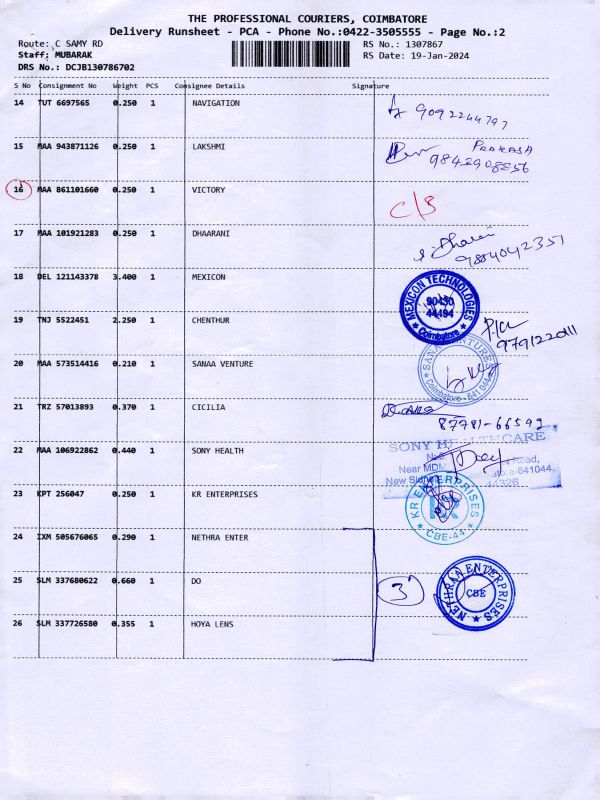 THE PROFESSIONAL COURIERS, COIMBATORE
Delivery Runsheet - PCA - Phone No.:0422-3505555 - Page No.:2
Route: C SAMY RD
RS No.: 1307867
Staff: MUBARAK
RS Date: 19-Jan-2024
DRS No.: DCJB130786702
S No Consignment No Weight PCS Consignee Details Signature
14 TUT 6697565 0.250 1 NAVIGATION 9092244797
15 MAA 943871126 0.250 1 LAKSHMI PRAKASH
16 MAA 861101660 0.250 1 VICTORY C/S
17 MAA 101921283 0.250 1 DHAARANI
9884042351
18 DEL 121143378 3.400 1 MEXICON MEXICON TECHNOLOGIES
Coimbatore
19 TNJ 5522451 2.250 1 CHENTHUR
20 MAA 573514416 0.210 1 SANAA VENTURE SANAA VENTURES
Coimbatore - 641 044
21 TRZ 57013893 0.370 1 CICILIA
87781-66592
22 MAA 106922862 0.440 1 SONY HEALTH SONY HEALTHCARE
Near MDM Road,
New Coimbatore-641044,
23 KPT 256047 0.250 1 KR ENTERPRISES KR ENTERPRISES
KR
CBE-44
24 IXM 505676065 0.290 1 NETHRA ENTER
25 SLM 337680622 0.660 1 DO 3 NETHRAN ENTERPRISES
CBE
26 SLM 337726580 0.355 1 HOYA LENS